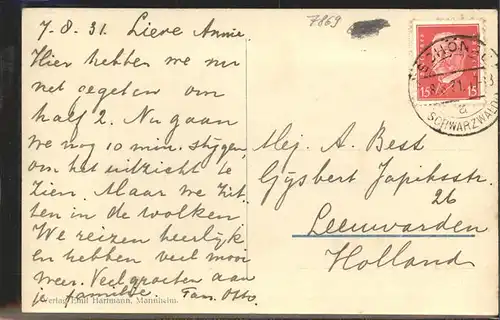 7869
7.8.31. Lieve Annie
Hier hebben we nu
net gegeten om
half 2. Nu gaan
we nog 10 min. stijgen,
om het uitzicht te
zien. Maar we zit-
ten in de wolken
We reizen heerlijk
en hebben veel mooi
weer. Veel groeten aan
je familie. Tan. Otto.
Verlag Emil Hartmann, Mannheim.
15 15
SCHWARZWALD
Mej. A. Best
Gijsbert Japiksstr.
26
Leeuwarden
Holland